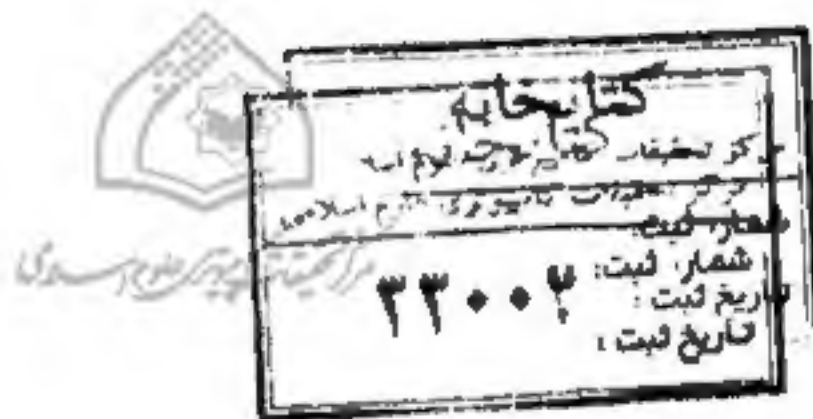 کتابخانه
مرکز تحقیقات کامپیوتری علوم اسلامی
شماره ثبت:
۳۳۰۰۲
تاریخ ثبت:
مرکز تحقیقات کامپیوتری علوم اسلامی